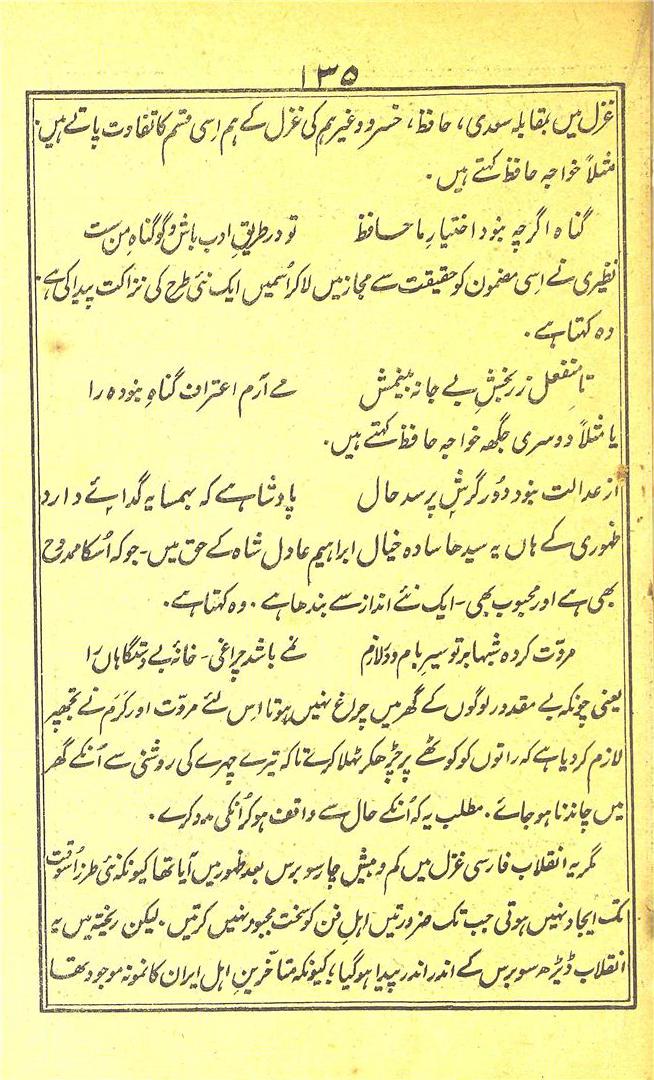 ۱۳۵
غزل میں بمقابلہ سعدی، حافظ، خسرو وغیرہم کی غزل کے ہم اسی قسم کا تفاوت پاتے ہیں۔
مثلاً خواجہ حافظ کہتے ہیں۔
گناہ اگرچہ نبود اختیارِ ما حافظ تو در طریقِ ادب باش و گو گناہِ من ست
نظیری نے اِسی مضمون کو حقیقت سے مجاز میں لا کر اُسمیں ایک نئی طرح کی نزاکت پیدا کی ہے۔
وہ کہتا ہے۔
تا منفعل ز رنجشِ بے جا نہ بینمش مے آرم اعترافِ گناہِ نبودہ را
یا مثلاً دوسری جگھہ خواجہ حافظ کہتے ہیں۔
از عدالت نبود دُور گرش پرسد حال پادشاہے کہ بہمسایہ گدائے دارد
ظہوری کے ہاں یہ سیدھا سادہ خیال ابراہیم عادل شاہ کے حق میں۔ جو کہ اُسکا ممدوح
بھی ہے اور محبوب بھی۔ ایک نئے انداز سے بندھا ہے۔ وہ کہتا ہے۔
مروّت کردہ شبہا بر تو سیرِ بام و در لازم نمے باشد چراغی۔ خانۂ بے دستگاہاں را
یعنی چونکہ بے مقدور لوگوں کے گھر میں چراغ نہیں ہوتا اِس لئے مروّت اور کَرَم نے تجھپر
لازم کر دیا ہے کہ راتوں کو کوٹھے پر چڑھکر ٹہلا کرے تاکہ تیرے چہرے کی روشنی سے اُنکے گھر
میں چاندنا ہو جائے۔ مطلب یہ کہ اُنکے حال سے واقف ہو کر اُنکی مدد کرے۔
مگر یہ انقلاب فارسی غزل میں کم و بیش چار سو برس بعد ظہور میں آیا تھا کیونکہ نئی طرز اُسوقت
تک ایجاد نہیں ہوتی جب تک ضرورتیں اہلِ فن کو سخت مجبور نہیں کرتیں۔ لیکن ریختہ میں یہ
انقلاب ڈیڑھ سو برس کے اندر اندر پیدا ہو گیا؛ کیونکہ متأخرینِ اہل ایران کا نمونہ موجود تھا